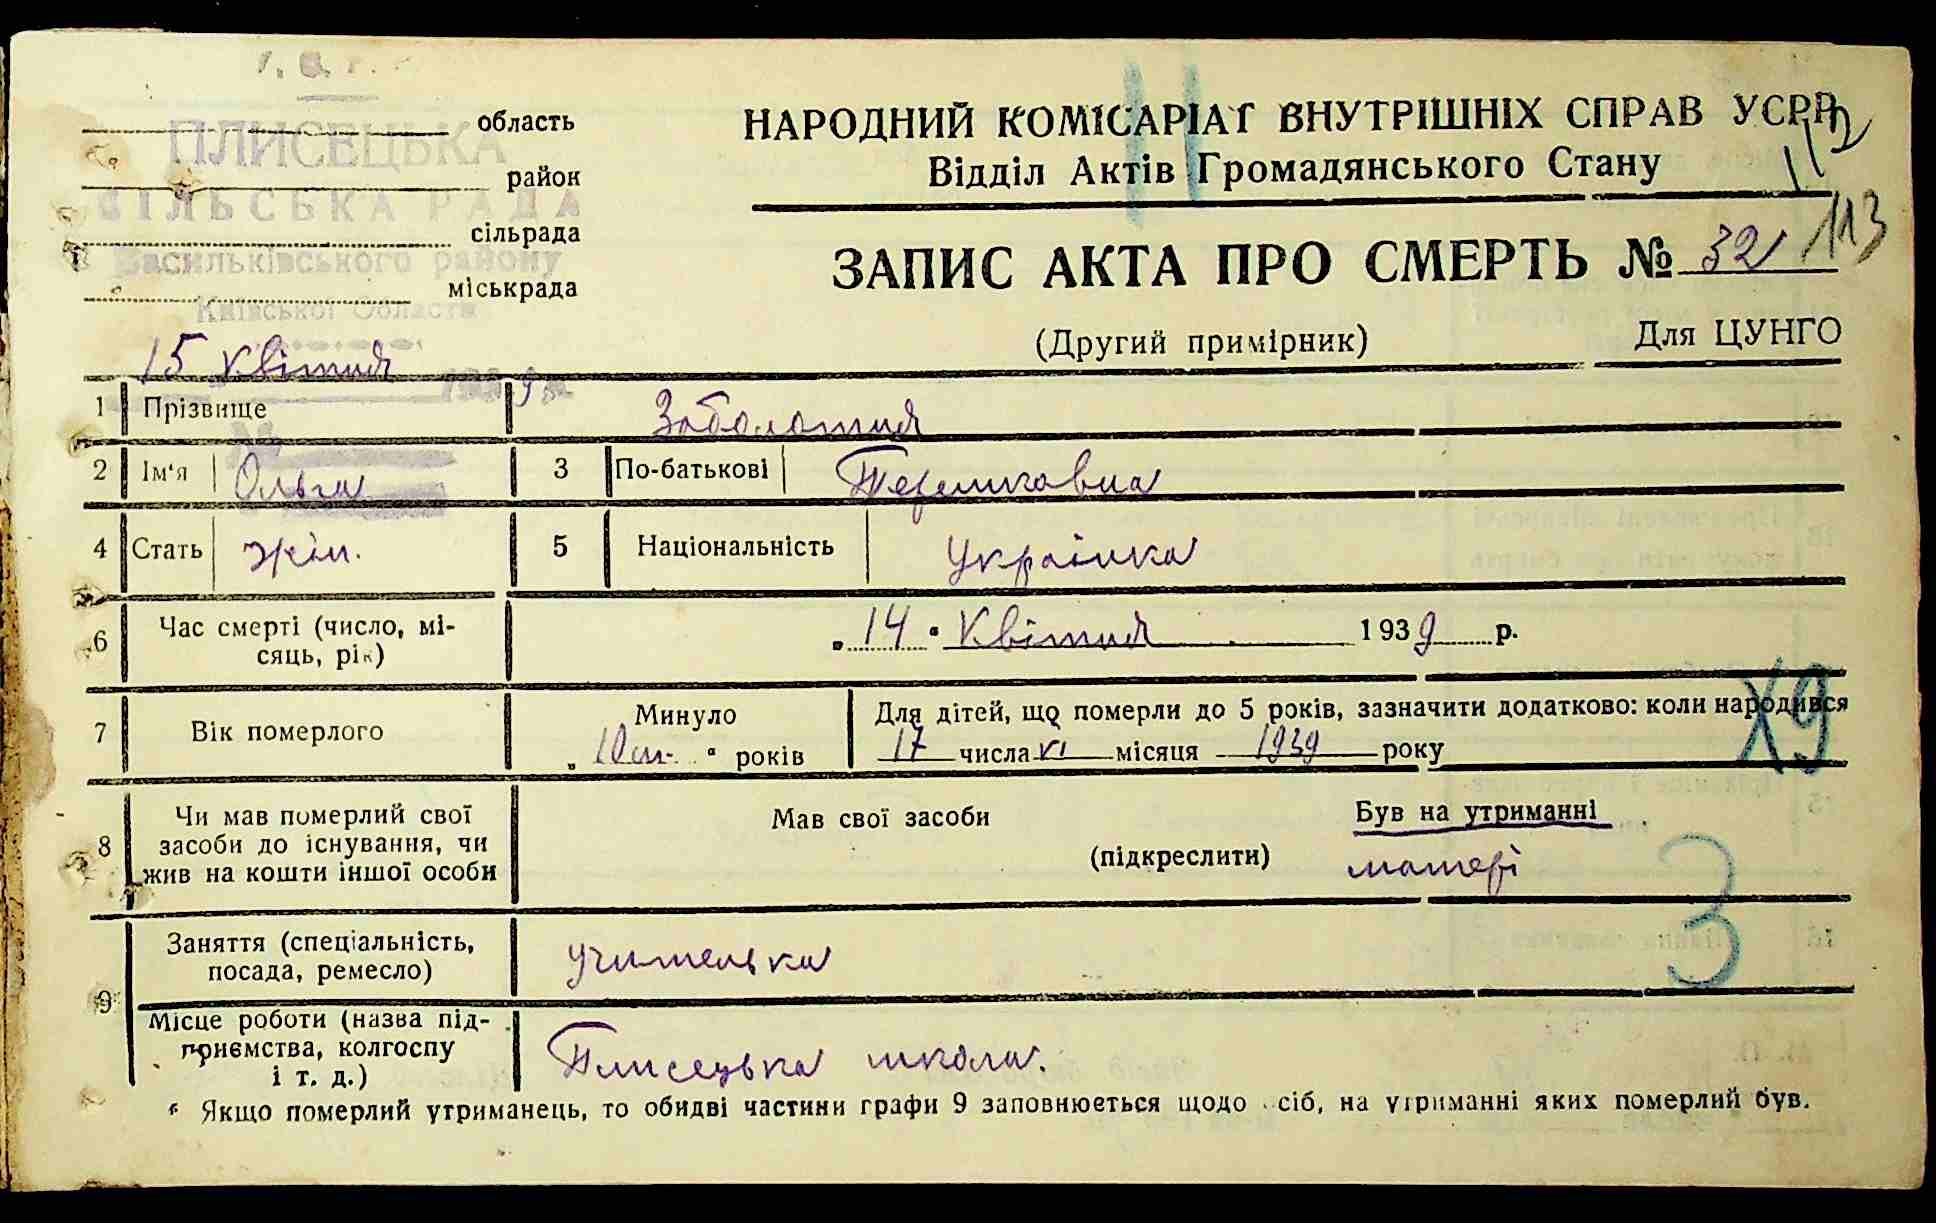 область
ПЛИСЕЦЬКА
район
СІЛЬСЬКА РАДА
сільрада
Васильківського району
міськрада
Київської Области
НАРОДНИЙ КОМІСАРІАТ ВНУТРІШНІХ СПРАВ УСРР
112
Відділ Актів Громадянського Стану
ЗАПИС АКТА ПРО СМЕРТЬ № 32 113
(Другий примірник) Для ЦУНГО
15 Квітня 1939 р.
1 Прізвище Заболотня
2 Ім'я Ольга 3 По-батькові
4 Стать жін. 5 Національність Українка
6 Час смерті (число, мі-
сяць, рік) „ 14 " Квітня 1939 р.
7 Вік померлого Минуло Для дітей, що померли до 5 років, зазначити додатково: коли народився
„ 10 м. " років 17 числа VI місяця 1939 року
Х9
8 Чи мав померлий свої
засоби до існування, чи
жив на кошти іншої особи
Мав свої засоби Був на утриманні
(підкреслити) матері
3
9 Заняття (спеціальність,
посада, ремесло) учителька
Місце роботи (назва під-
приємства, колгоспу
і т. д.) Плисецька школа.
* Якщо померлий утриманець, то обидві частини графи 9 заповнюеться щодо осіб, на утриманні яких померлий був.